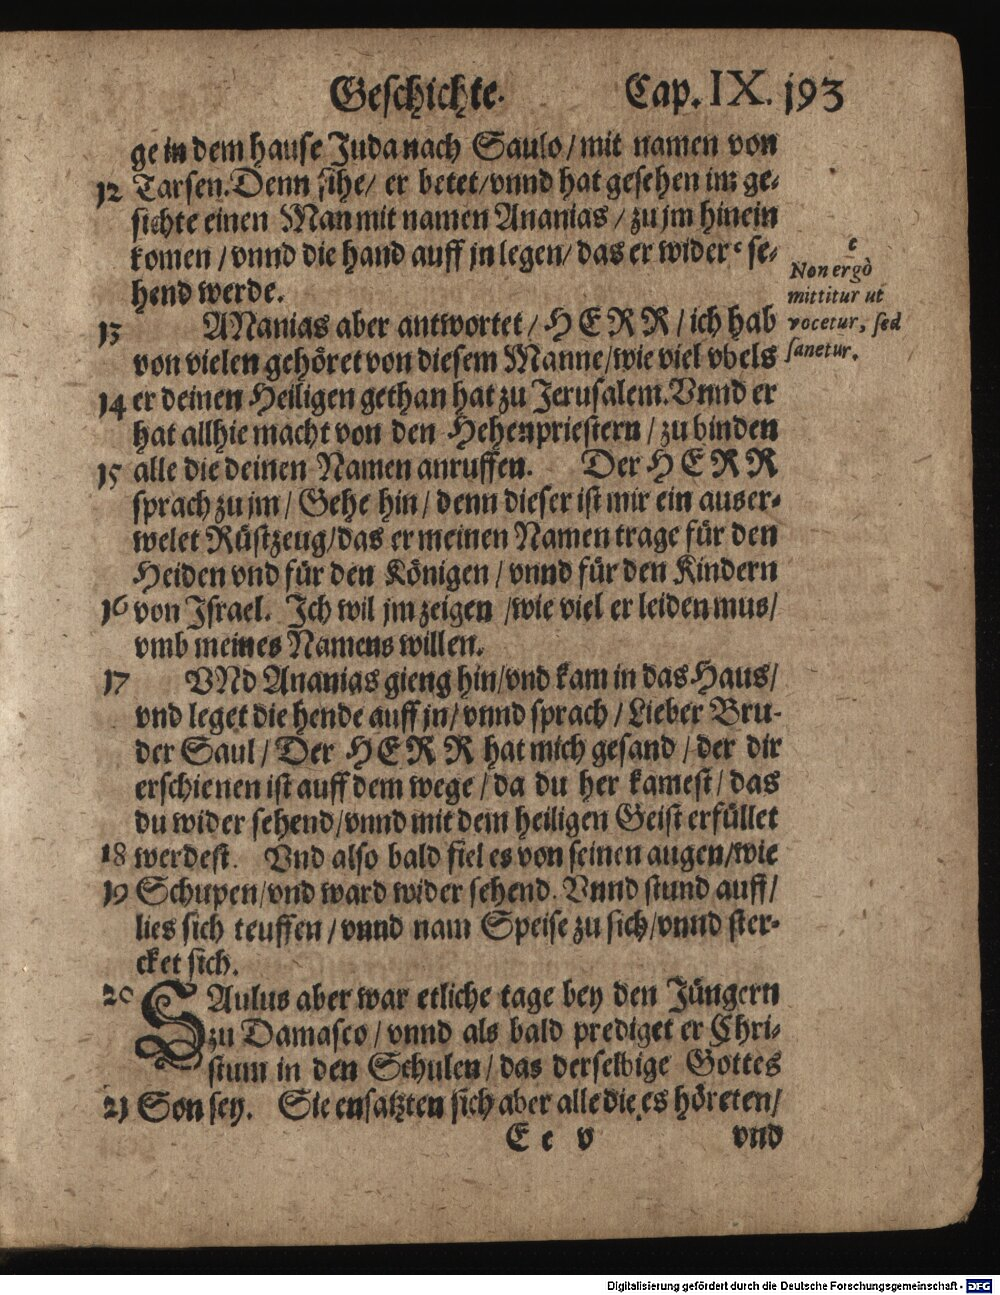 Geschichte. Cap. IX. 193
ge in dem hause Juda nach Saulo / mit namen von
12 Tarsen. Denn sihe / er betet / vnnd hat gesehen im ge-
sichte einen Man mit namen Ananias / zu jm hinein
komen / vnnd die hand auff jn legen / das er wider e se-
hend werde.
e
Non ergò
mittitur ut
vocetur, sed
sanetur.
13 ANanias aber antwortet / HERR / ich hab
von vielen gehöret von diesem Manne / wie viel vbels
14 er deinen Heiligen gethan hat zu Jerusalem. Vnnd er
hat allhie macht von den Hehenpriestern / zu binden
15 alle die deinen Namen anruffen. Der HERR
sprach zu jm / Gehe hin / denn dieser ist mir ein auser-
welet Rüstzeug / das er meinen Namen trage für den
Heiden vnd für den Königen / vnnd für den Kindern
16 von Israel. Ich wil jm zeigen / wie viel er leiden mus /
vmb meines Namens willen.
17 VNd Ananias gieng hin / vnd kam in das Haus /
vnd leget die hende auff jn / vnnd sprach / Lieber Bru-
der Saul / Der HERR hat mich gesand / der dir
erschienen ist auff dem wege / da du her kamest / das
du wider sehend / vnnd mit dem heiligen Geist erfüllet
18 werdest. Vnd also bald fiel es von seinen augen / wie
19 Schupen / vnd ward wider sehend. Vnnd stund auff /
lies sich teuffen / vnnd nam Speise zu sich / vnnd ster-
cket sich.
20 SAulus aber war etliche tage bey den Jüngern
zu Damasco / vnnd als bald prediget er Chri-
stum in den Schulen / das derselbige Gottes
21 Son sey. Sie ensatzten sich aber alle die es höreten /
E e v vnd
Digitalisierung gefördert durch die Deutsche Forschungsgemeinschaft - DFG